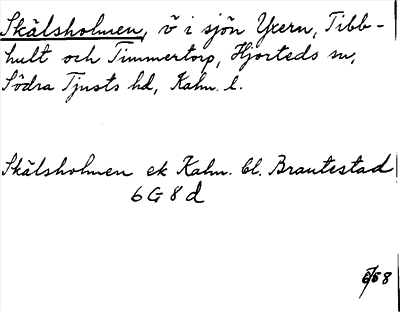 Skälsholmen, ö i sjön Yxern, Tibb-
hult och Timmertorp, Hjorteds sn,
Södra Tjusts hd, Kalm. l.
Skälsholmen ek Kalm. bl. Brantestad
6 G 8 d